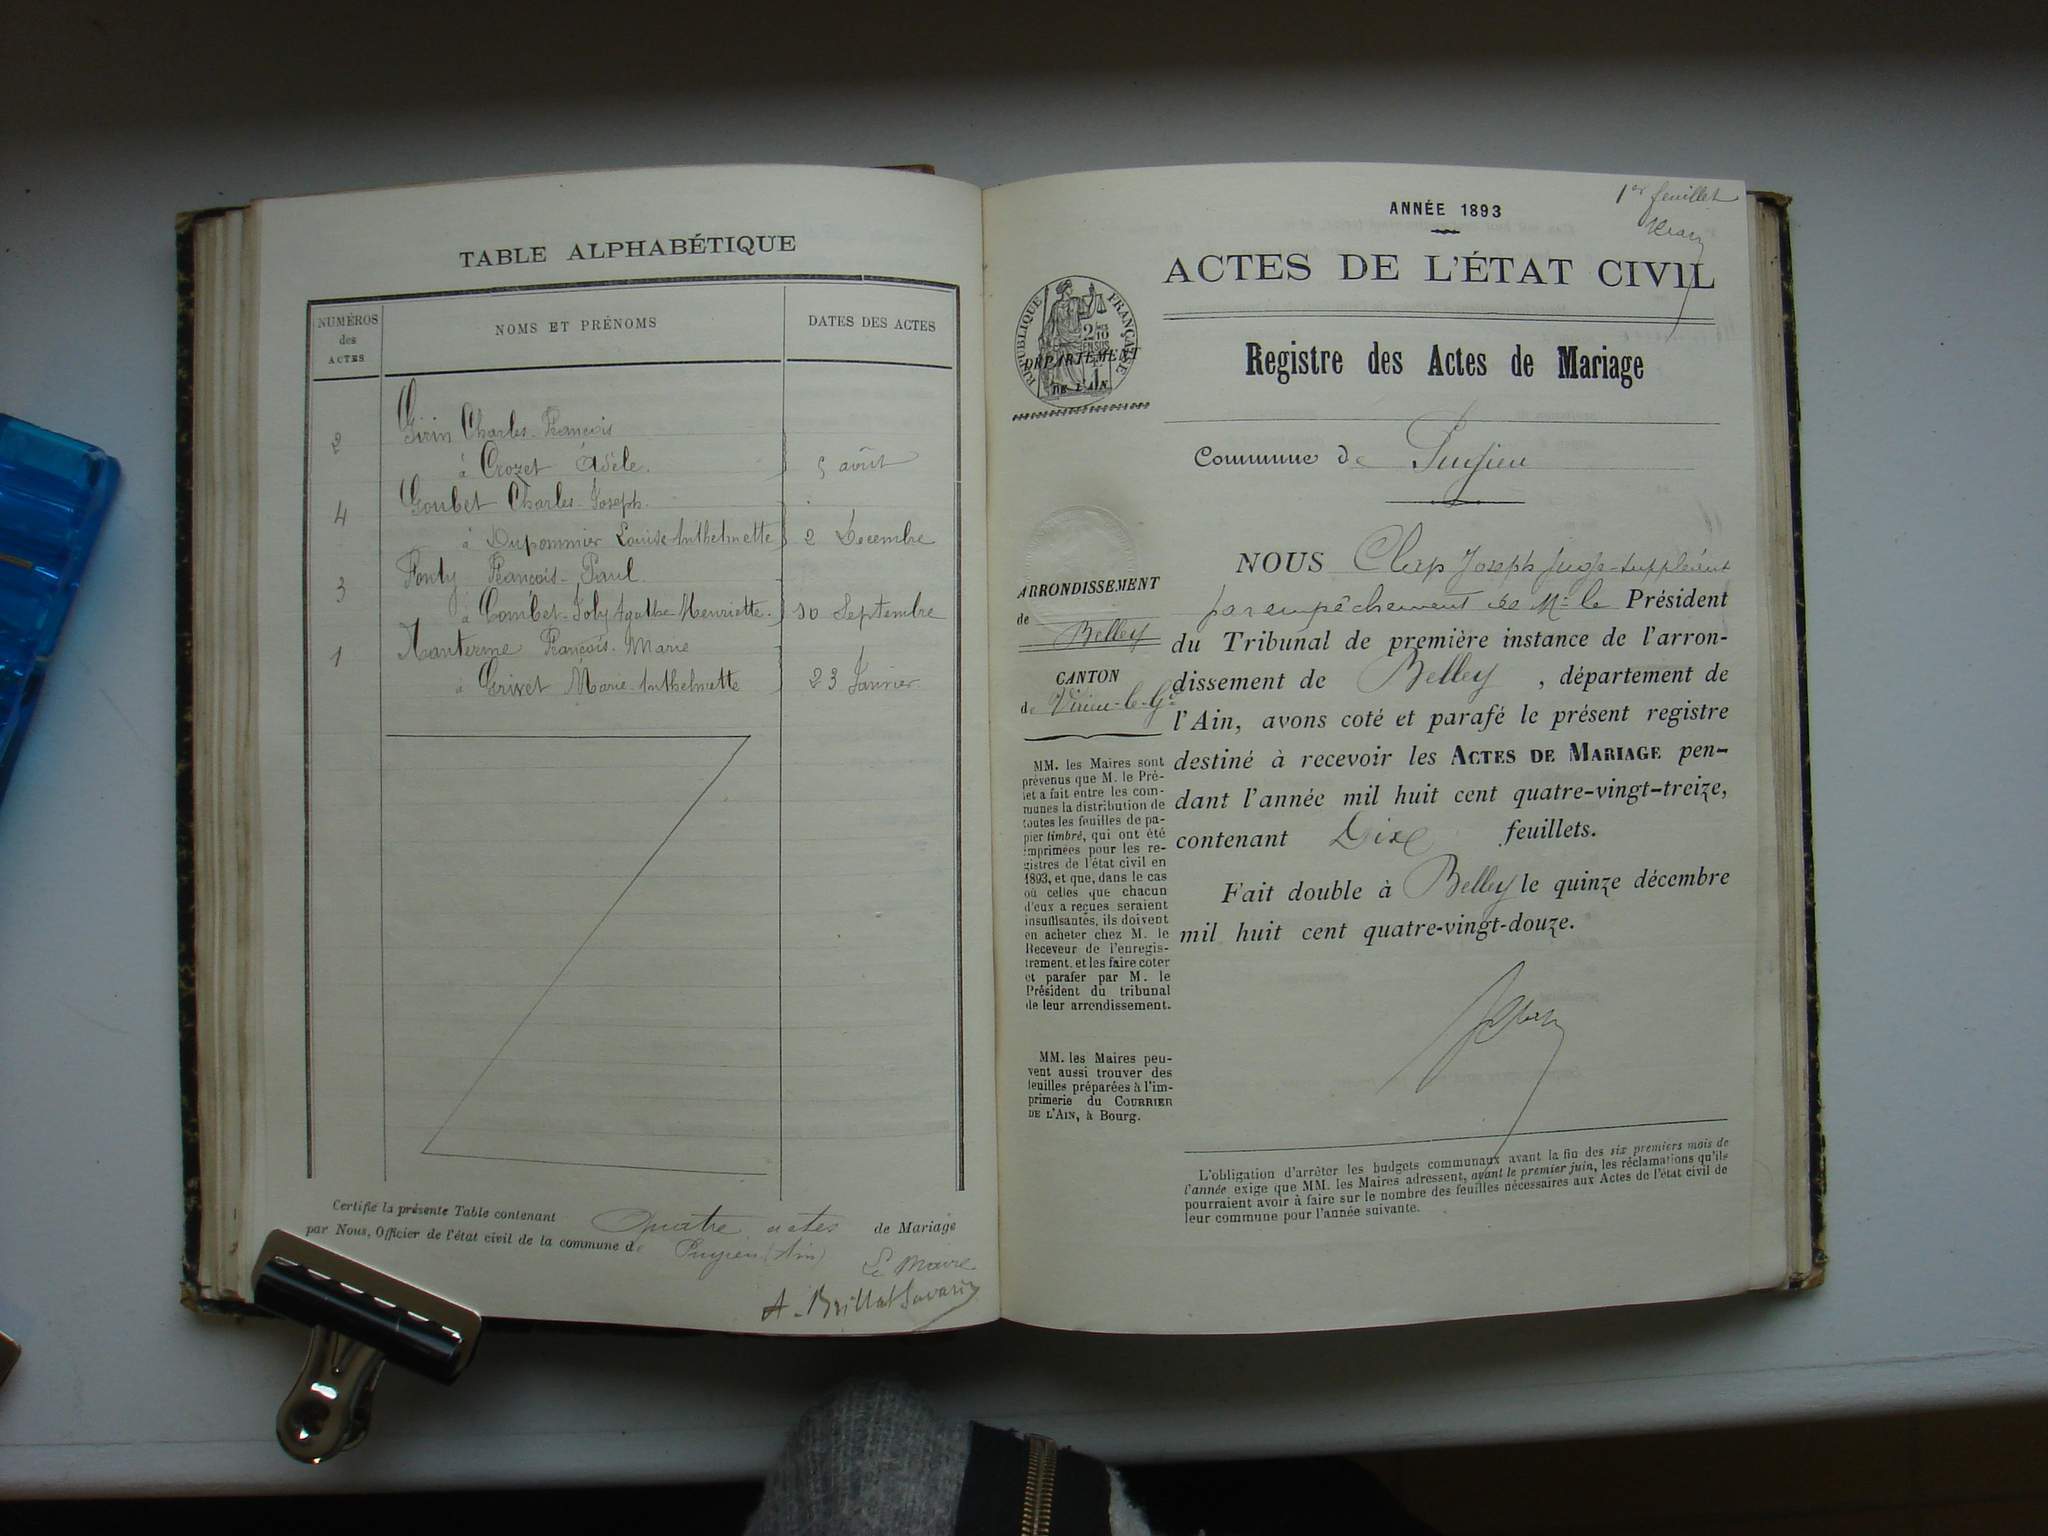 TABLE ALPHABÉTIQUE
NUMÉROS
des
ACTES
NOMS ET PRÉNOMS
DATES DES ACTES
2
Girin Charles-François
à Crozet Adèle.
5 août
4
Goubet Charles-Joseph.
à Dupommier Louise Anthelmette
2 Decembre
3
François-Paul.
à Combet-Joly Agathe-Henriette.
10 Septembre
1
François-Marie
à Grivet Marie-Anthelmette
23 Janvier
Certifié la présente Table contenant Quatre actes de Mariage
par Nous, Officier de l'état civil de la commune de Pugieu (Ain)
Le Maire
A. Brillat Savarin
1er feuillet
ANNÉE 1893
ACTES DE L'ÉTAT CIVIL
RÉPUBLIQUE FRANÇAISE
2/10
EN SUS
DÉPARTEMENT
DE L'AIN
Registre des Actes de Mariage
Commune de Pugieu
ARRONDISSEMENT
de Belley
CANTON
de Virieu-le-Gd
MM. les Maires sont
prévenus que M. le Pré-
fet a fait entre les com-
munes la distribution de
toutes les feuilles de pa-
pier timbré, qui ont été
imprimées pour les re-
gistres de l'état civil en
1893, et que, dans le cas
où celles que chacun
d'eux a reçues seraient
insuffisantes, ils doivent
en acheter chez M. le
Receveur de l'enregis-
trement, et les faire coter
et parafer par M. le
Président du tribunal
de leur arrondissement.
MM. les Maires peu-
vent aussi trouver des
feuilles préparées à l'im-
primerie du COURRIER
DE L'AIN, à Bourg.
NOUS Clerp Joseph Juge-suppléant
par empêchement de Mr le Président
du Tribunal de première instance de l'arron-
dissement de Belley, département de
l'Ain, avons coté et parafé le présent registre
destiné à recevoir les ACTES DE MARIAGE pen-
dant l'année mil huit cent quatre-vingt-treize,
contenant Dix feuillets.
Fait double à Belley le quinze décembre
mil huit cent quatre-vingt-douze.
L'obligation d'arrêter les budgets communaux avant la fin des six premiers mois de
l'année exige que MM. les Maires adressent, avant le premier juin, les réclamations qu'ils
pourraient avoir à faire sur le nombre des feuilles nécessaires aux Actes de l'état civil de
leur commune pour l'année suivante.